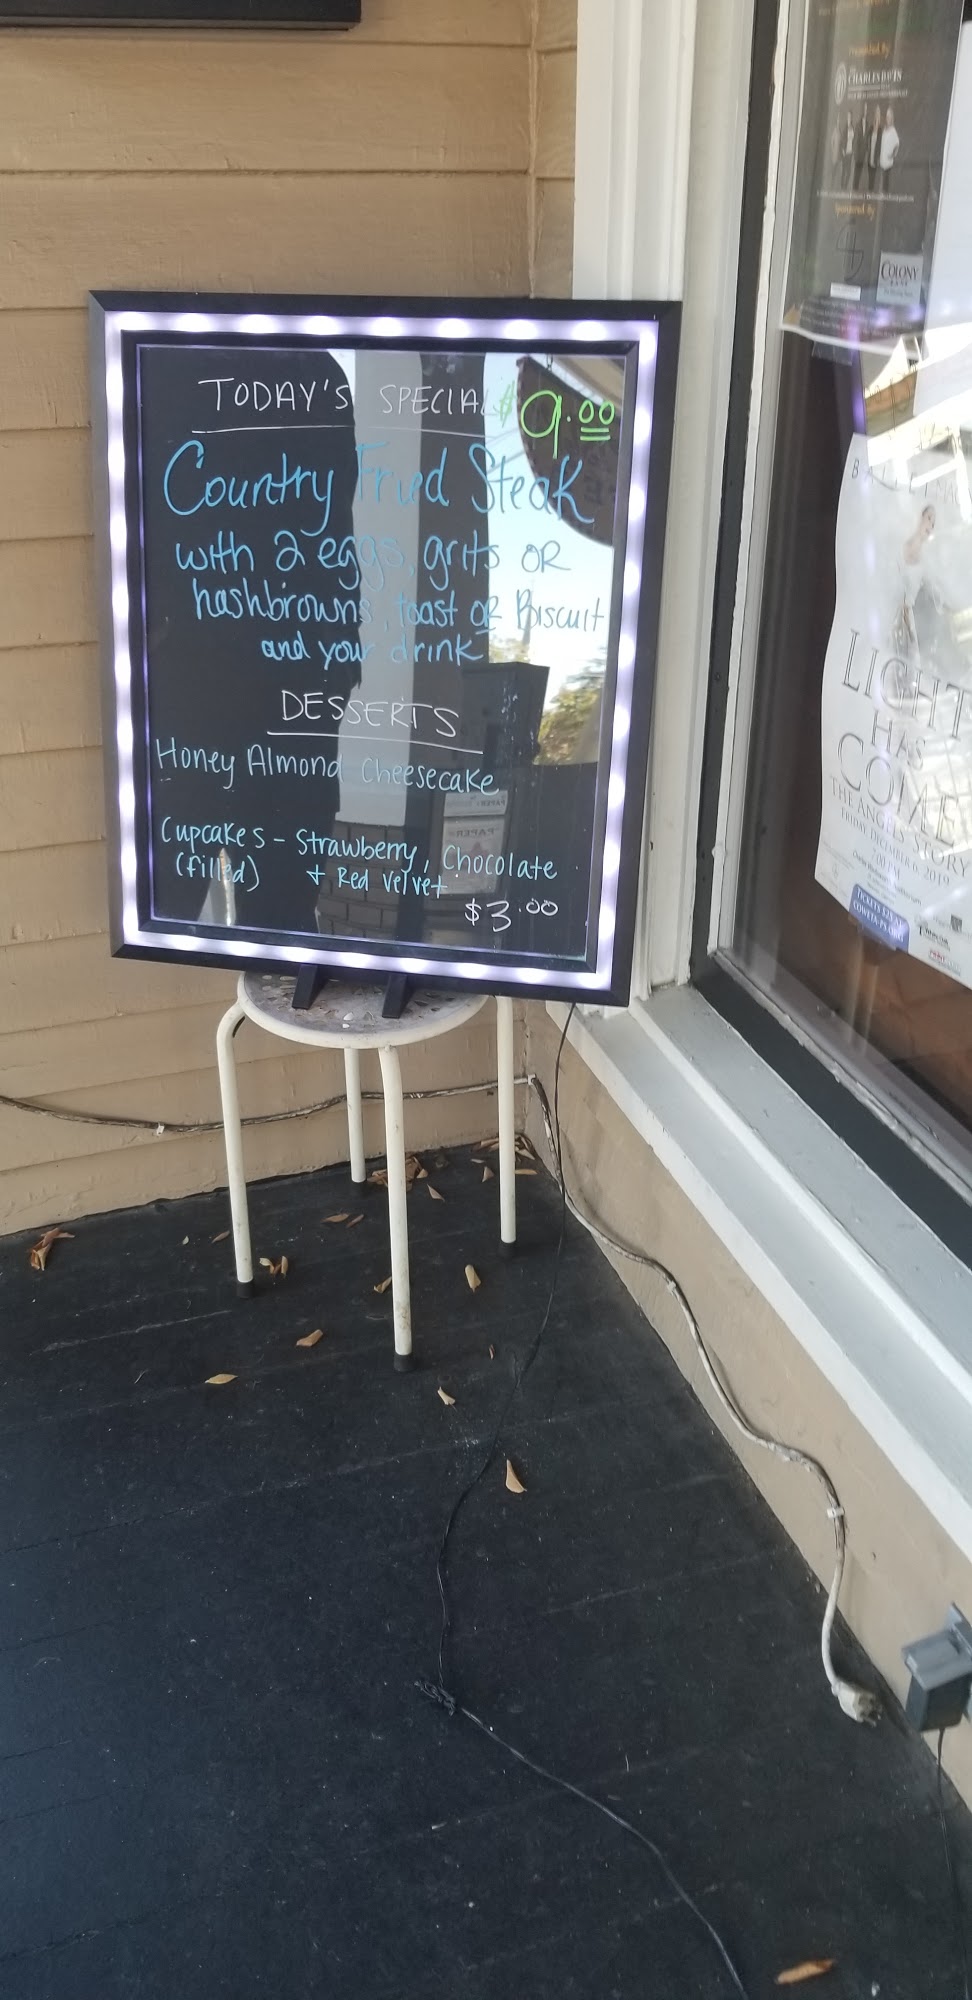 TODAY'S SPECIAL $9.00
Country Fried Steak
with 2 eggs, grits OR
hashbrowns, toast OR Biscuit
and your drink
DESSERTS
Honey Almond Cheesecake
Cupcakes - Strawberry, Chocolate
(filled) + Red Velvet
$3.00
Presented By
CHARLESTOWN
Sponsored By
COLONY
BANK
LIGHT
HAS
COME
THE ANGELS' STORY
FRIDAY DECEMBER 6, 2019
7:00 PM
TICKETS
PAPER